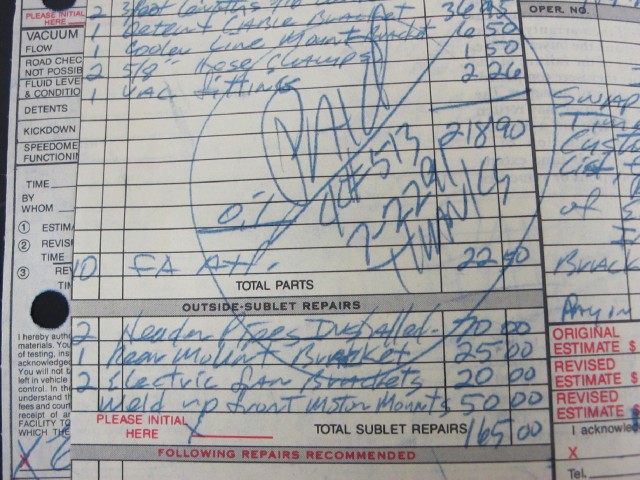 OPER. NO.
PLEASE INITIAL
HERE
2 36 85
VACUUM
1 Detent Cable Bracket 6 50
FLOW
1 Cooler Line Mount Bracket 1 50
ROAD CHEC
NOT POSSIB
2 5/8" Hose Clamps 2 26
FLUID LEVE
& CONDITIO
1 VAC fittings
DETENTS
PAID
KICKDOWN
218 90
CK# 513
SPEEDOME
FUNCTIONI
2-22-91
THANKS
TIME
BY
WHOM
OIL
① ESTIM
② REVISI
TIME
③ RE
TI
10 FA ATF. 22 50
TOTAL PARTS
OUTSIDE-SUBLET REPAIRS
2 Header Pipes Installed 70 00
1 Rear Mount Bracket 25 00
2 Electric fan Brackets 20 00
Weld up front Motor Mounts 50 00
PLEASE INITIAL
HERE
X
TOTAL SUBLET REPAIRS 165 00
FOLLOWING REPAIRS RECOMMENDED
I hereby autho
materials. You
of testing, ins
acknowledged
You will not b
left in vehicle
control. In the
understand th
fees and court
receipt of a
FACILITY TO
WHICH THE
X
of
ORIGINAL
ESTIMATE $
REVISED
ESTIMATE $
REVISED
ESTIMATE $
I acknowle
X
Tel.